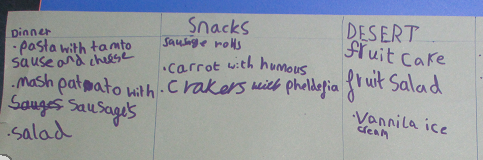 Dinner
• pasta with tamto
sause and cheese
• mash patato with
Sauges Sausages
• salad
Snacks
sausage rolls
• carrot with humous
• Crakers with pheldefia
DESERT
fruit cake
fruit salad
• Vannila ice
cream